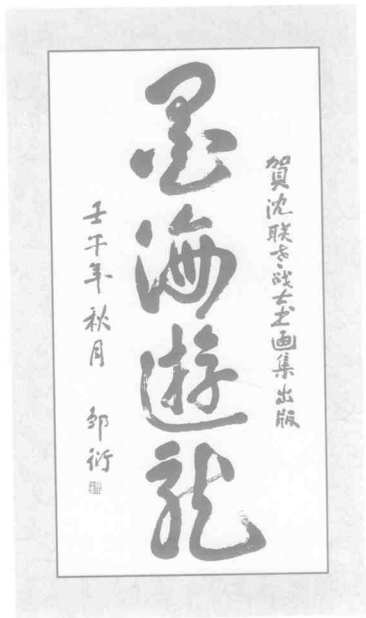 賀沈联老战士书画集出版
墨海遊龙
壬午年秋月 邹衍